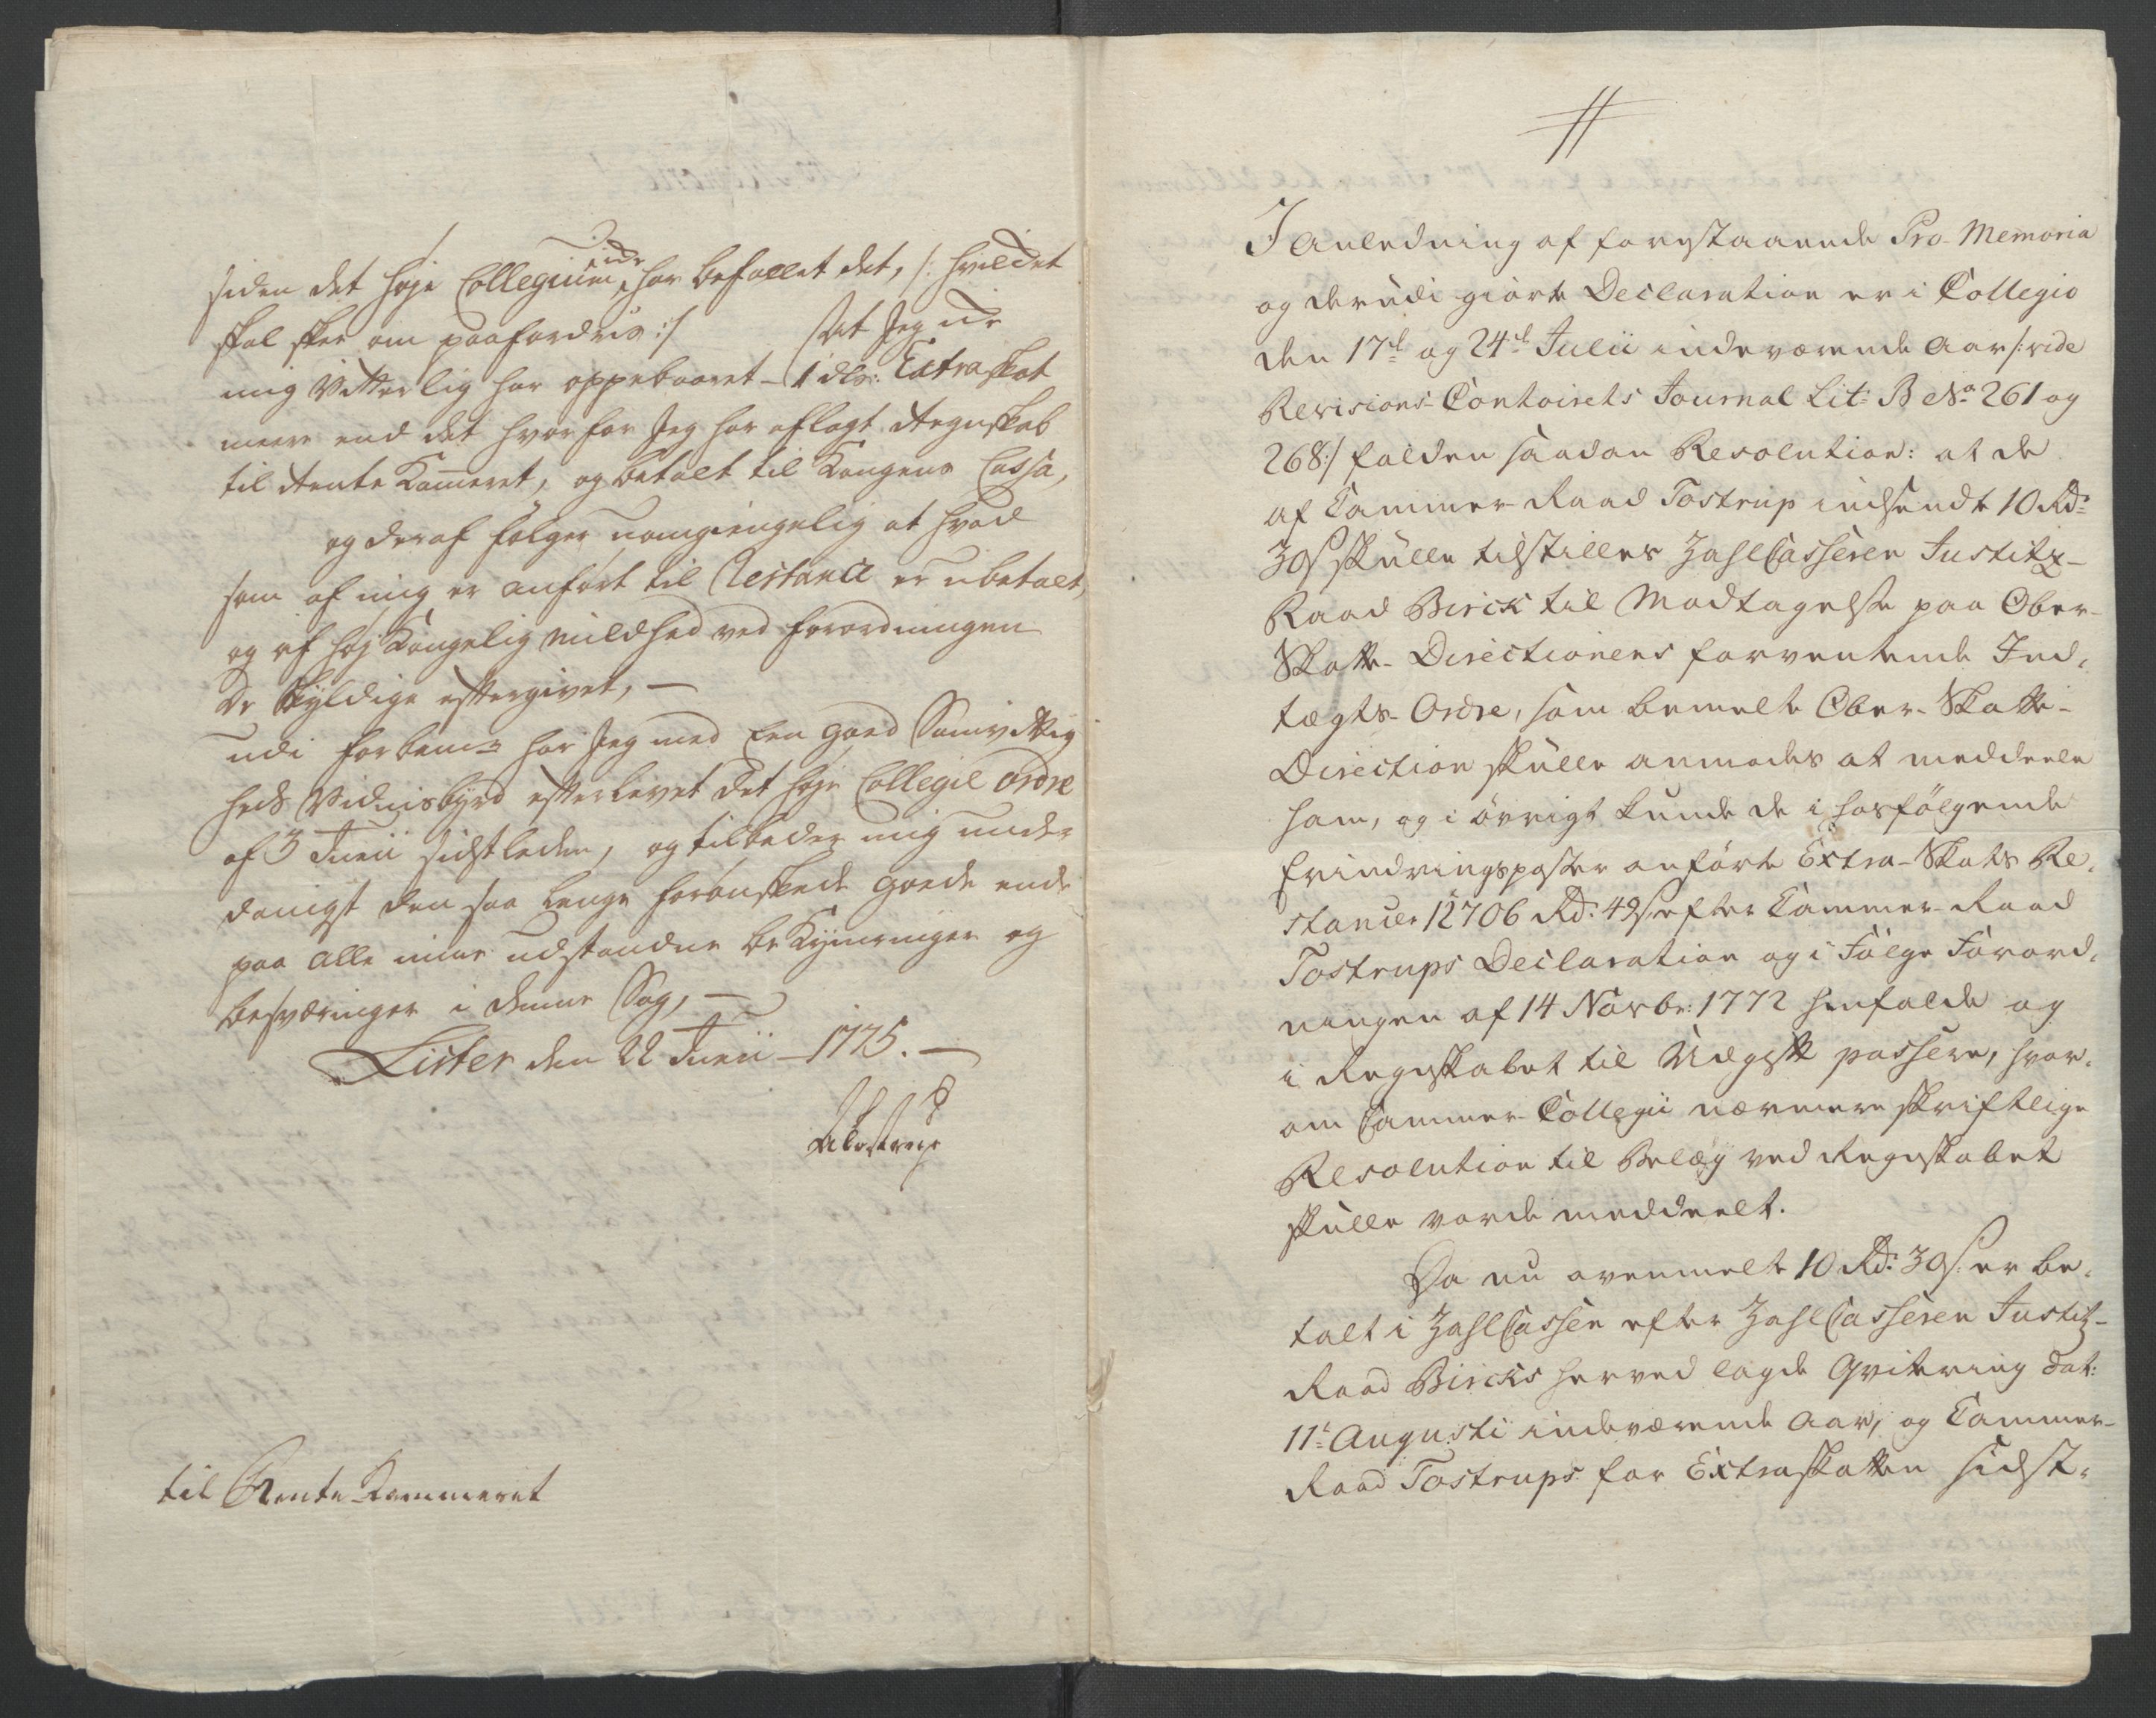 siden det høje Collegium ide har befallet det, /: hvilcket
skal skee om paafordris :/ At Jeg ide
mig Vitterlig har oppebaaret - 1 dlr: Extraskat
meere end det hvorfor Jeg har aflagt Regnskab
til Rente Kameret, og betalt til Kongens Cassa,
og deraf følger uomgiengelig at hvad
som af mig er anført til Restance er ubetalt,
og af høj Kongelig mildhed ved forordningen
de skyldige eftergivet, —
udi forbem:te har Jeg med Een goed Samvittig
heds Vidnisbyrd efterlevet det høje Collegii ordre
af 3 Junii sidstleden, og tilbeder mig under
danigst den saa lenge forønskede goede ende
paa alle mine udstandne bekymringer og
besværinger i denne Sag, —
Lister den 22 Junii - 1775. —
Tostrup
til Rente Kammeret
#
I Anledning af forestaaende Pro-Memoria
og derudi giørte Declaration er i Collegio
den 17de og 24de Julii indeværende Aar /: vide
Revisions-Contoirets Journal Lit: B No 261 og
268 :/ falden saadan Resolution: at de
af Cammer-Raad Tostrup indsendte 10 Rd:
30 s skulle tilstilles ZahlCasseren Justitz-
Raad Birck til Modtagelse paa Ober-
Skatte-Directionens forventende Ind-
tægts-Ordre, som bemelte Ober-Skatte-
Direction skulle anmodes at meddeele
ham, og i øvrigt kunde de i hosfølgende
Erindringsposter anførte Extra-Skats Re-
stancer 12706 Rd: 49 s. efter Cammer-Raad
Tostrups Declaration og i Følge Forord-
ningen af 14 Novbr: 1772 henfalde og
i Regnskabet til Udgift passere, hvor-
om Cammer-Collegii nærmere skriftlige
Resolution til Belæg ved Regnskabet
skulle vorde meddeelt.
Da nu ovenmelte 10 Rd: 30 s. er be-
talt i ZahlCassen efter ZahlCasseren Justitz-
Raad Bircks herved lagde Qvitering dat:
11te Augusti indeværende Aar, og Cammer-
Raad Tostrups for Extraskatten sidst-